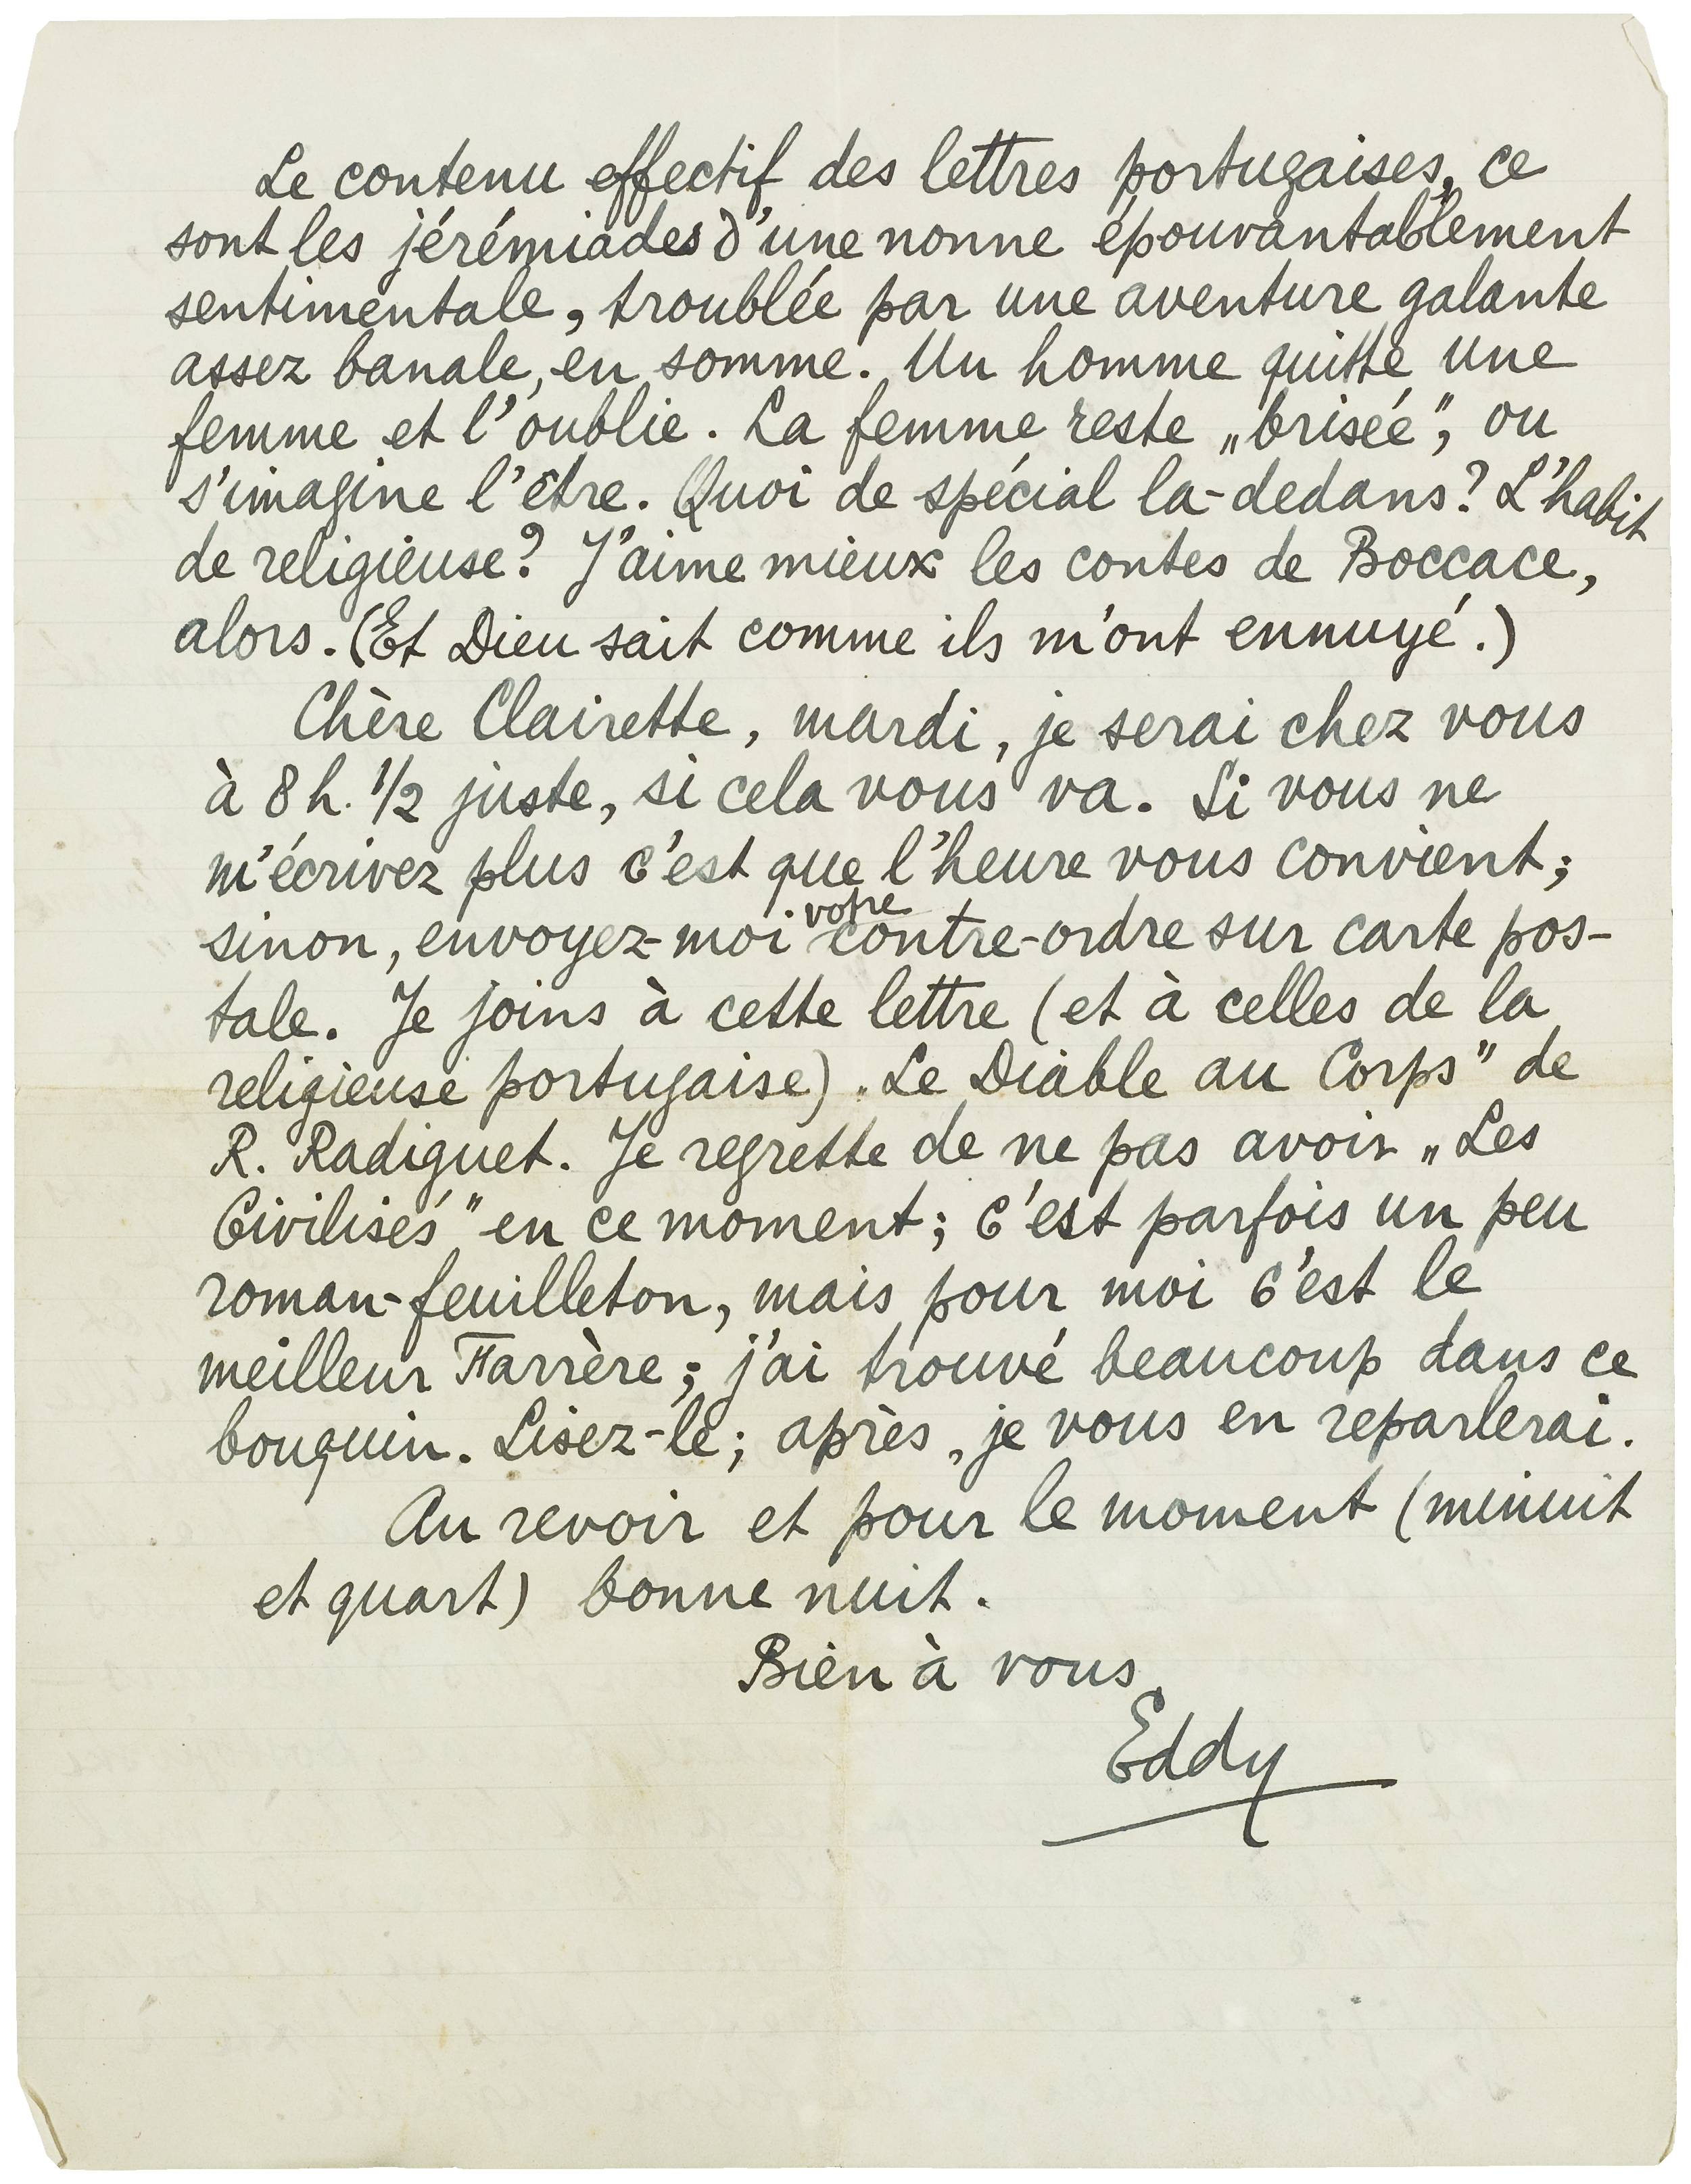 Le contenu effectif des lettres portugaises, ce
sont les jérémiades d'une nonne épouvantablement
sentimentale, troublée par une aventure galante
assez banale, en somme. Un homme quitte une
femme et l'oublie. La femme reste „brisée", ou
s'imagine l'être. Quoi de spécial la-dedans? L'habit
de religieuse? J'aime mieux les contes de Boccace,
alors. (Et Dieu sait comme ils m'ont ennuyé.)
Chère Clairette, mardi, je serai chez vous
à 8 h. 1/2 juste, si cela vous va. Si vous ne
m'écrivez plus c'est que l'heure vous convient;
sinon, envoyez-moi votre contre-ordre sur carte pos-
tale. Je joins à cette lettre (et à celles de la
religieuse portugaise) „Le Diable au Corps" de
R. Radiguet. Je regrette de ne pas avoir „Les
Civilisés" en ce moment; c'est parfois un peu
roman-feuilleton, mais pour moi c'est le
meilleur Farrère; j'ai trouvé beaucoup dans ce
bouquin. Lisez-le; après, je vous en reparlerai.
Au revoir et pour le moment (minuit
et quart) bonne nuit.
Bien à vous,
Eddy